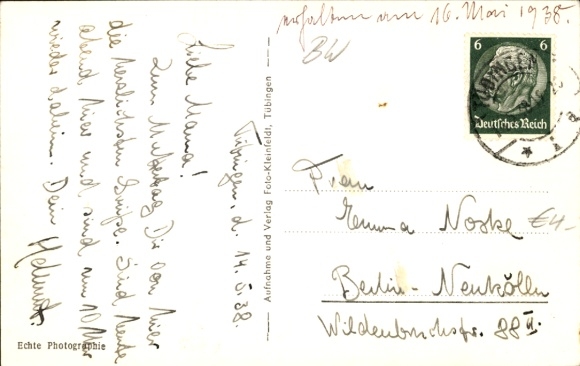 erhalten am 16. Mai 1938.
BW
6 6
Deutsches Reich
TÜBINGEN
Tübingen, d. 14.5.38.
Liebe Mama!
Zum Muttertag Dir von hier
die herzlichsten Grüße. Sind heute
abend hier und sind um 10 Uhr
wieder daheim. Dein Helmut.
Aufnahme und Verlag Foto-Kleinfeldt, Tübingen
Frau
Emma Noske
€4-
Berlin-Neukölln
Wildenbruchstr. 88 II.
Echte Photographie